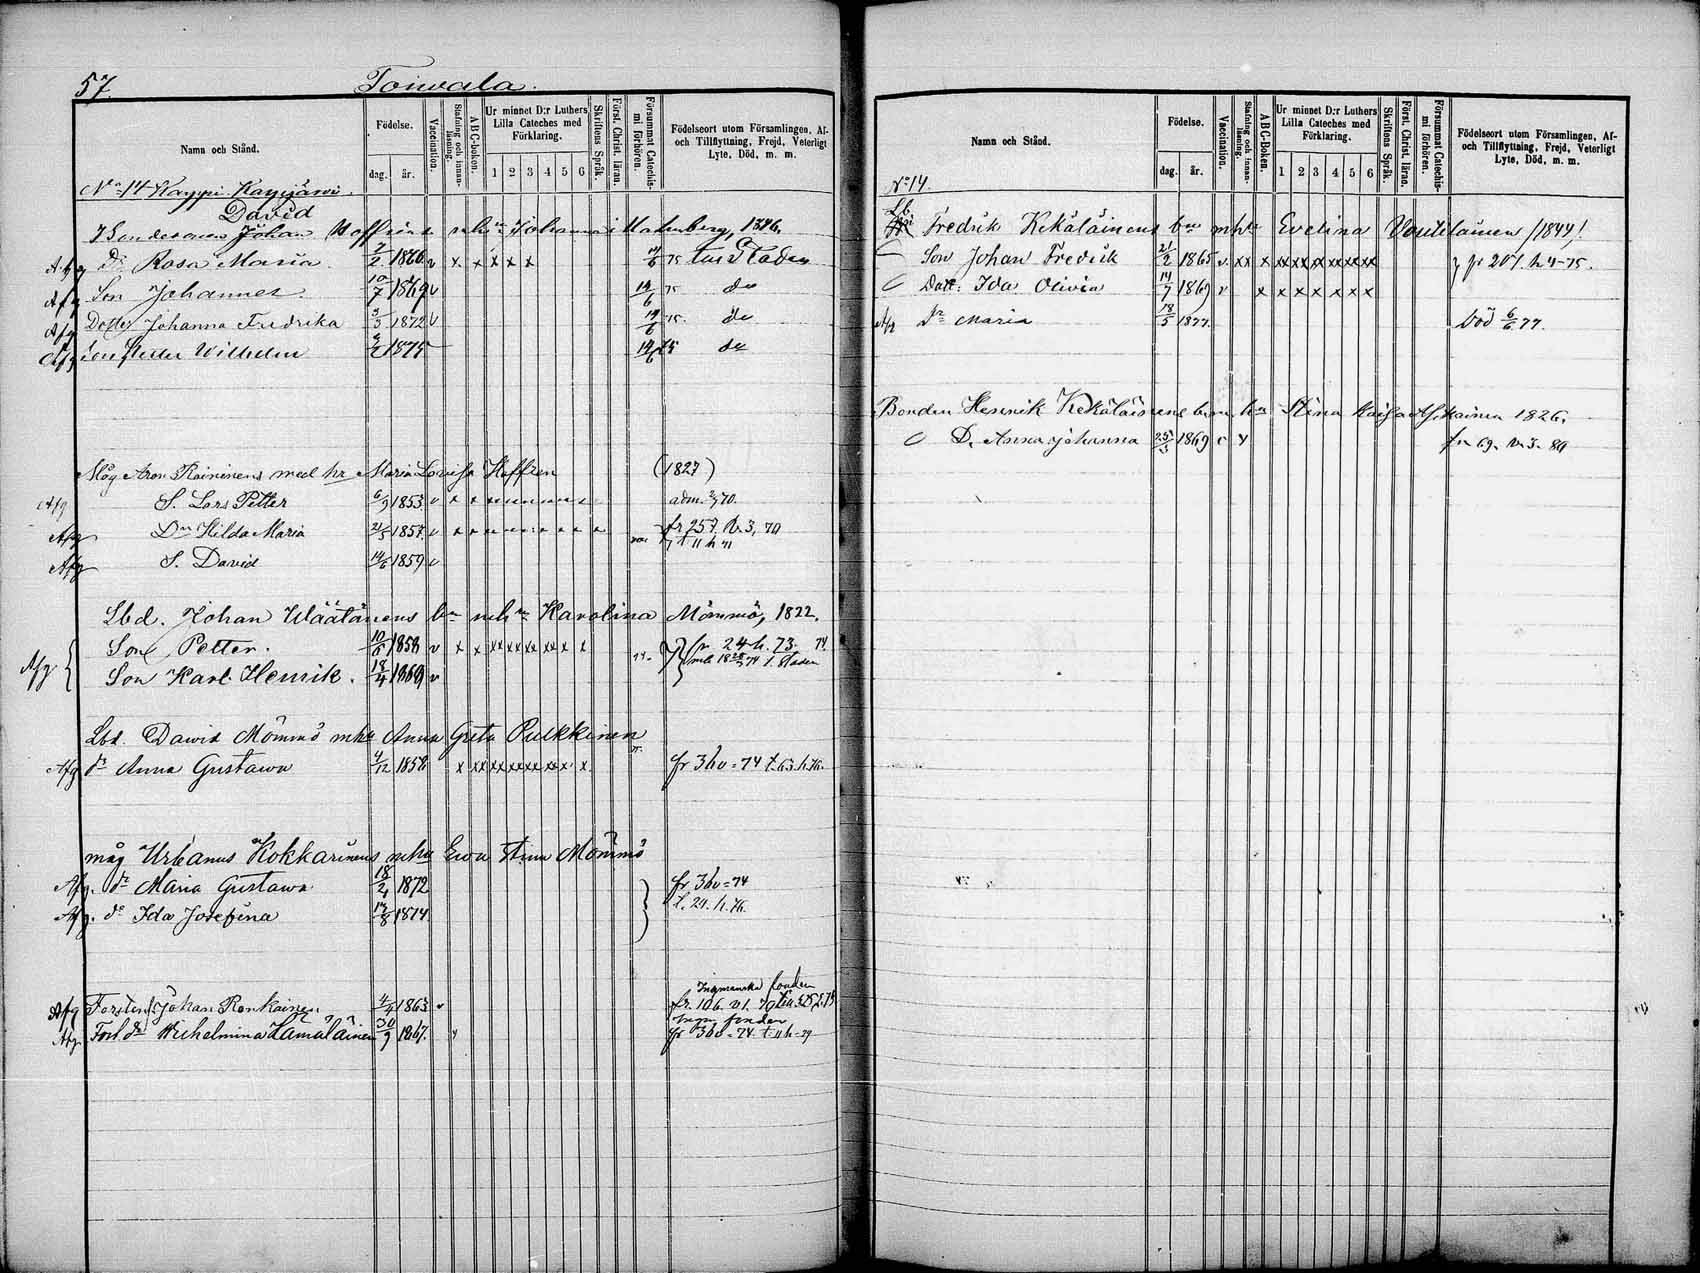 57.
Toiwala.
Namn och Stånd.
Födelse.
dag.
år.
Vaccination.
Stafning och innanläsning.
ABC-boken.
Ur minnet D:r Luthers Lilla Cateches med Förklaring.
1 2 3 4 5 6
Skriftens Språk.
Först. Christ. läran.
Försummat Catechismi förhören.
Födelseort utom Församlingen, Af- och Tillflyttning, Frejd, Veterligt Lyte, Död, m. m.
No 14 Kayppi Kayijärwi.
David
Johan Hoffréns Johanna 1846,
Afg Dr Rosa Maria 7/2 1866 v x x x x x 14/6 75 Staden
Afg Son Johannes. 10/7 1869 v 14/6 75 do
Afg Dotter Johanna Fredrika 3/3 1872 v 14/6 75. do
Afg Son Petter Wilhelm 9/2 1875 14/6 75 do
Måg Aron Raininens med hr Maria Lovisa Hoffren (1827)
Afg S. Lars Petter 6/9 1853 v x x adm. 70.
Afg Dr Hilda Maria 21/5 1857 v fr 257. v. 3, 70 t 11 h 71
Afg S. David 14/6 1859 v
Lbd. Johan Väätäinens bn mhu Karolina Mömmö, 1822.
Afg { Son Petter. 10/6 1858 v x x xx xx xx xx x x fr 24 h. 73. 74 t. Staden
Son Karl Henrik. 18/4 1869 v
Lbd. Dawid Mömmö mhu Anna Greta Pulkkinen
Afg dr Anna Gustawa 4/12 1858 x xx xx xx xx xx x x fr 36 v = 74 t. 63. h. 76.
måg Urbanus Kokkarinens mhu Ewa Stina Mömmö
Afg. dr Maria Gustawa 18/4 1872 } fr 36 v = 74
Afg. dr Ida Josefina 17/8 1874 t. 24. h. 76.
Ingmanska fonden
Afg Forsten Johan Ronkainen 4/4 1863 v fr. 106. v 1.
Ingm fonden
Afg Forl dr Wilhelmina Hämäläinen 30/9 1867. fr 36 v = 74 t 11 h = 79
Namn och Stånd.
Födelse.
dag.
år.
Vaccination.
Stafning och innanläsning.
ABC-Boken.
Ur minnet D:r Luthers Lilla Cateches med Förklaring.
1 2 3 4 5 6
Skriftens Språk.
Först. Christ. läran.
Försummat Catechismi förhören.
Födelseort utom Församlingen, Af- och Tillflyttning, Frejd, Veterligt Lyte, Död, m. m.
No 14.
Lb. Fredrik Kekäläinens bn mhu Evelina Voutilainen /1844/.
Son Johan Fredrik 21/2 1865 v. xx x xx xx xx xx xx xx } fr 207. h 4-75.
Dott: Ida Olivia 14/7 1869 v x x x x x x x
Afg Dr Maria 18/5 1877. Död 6/6 77.
Bonden Henrik Kekäläinens Stina Kaisa 1826.
D. Anna Johanna 25/3 1869 v fr 69.